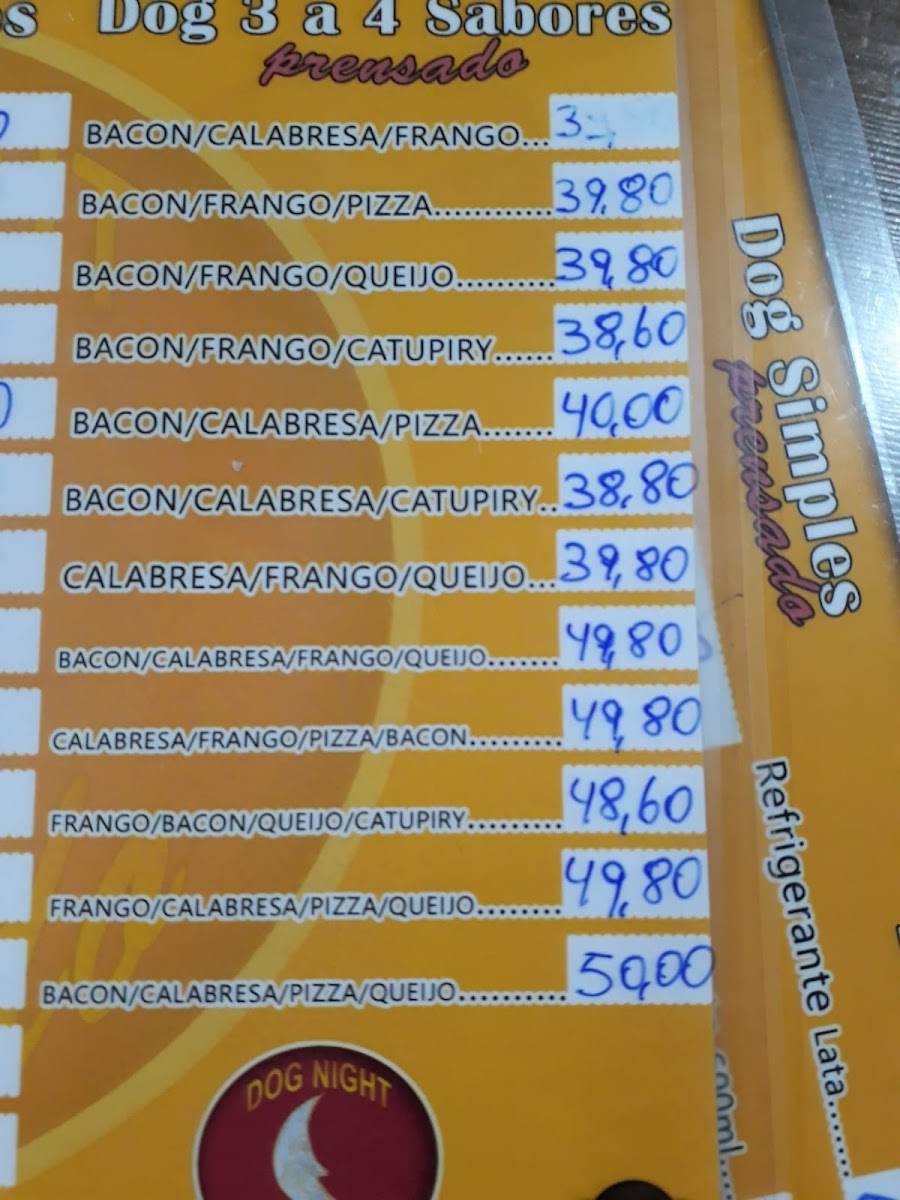 Dog 3 a 4 Sabores
prensado
BACON/CALABRESA/FRANGO...
BACON/FRANGO/PIZZA............39,80
BACON/FRANGO/QUEIJO..........39,80
BACON/FRANGO/CATUPIRY......38,60
BACON/CALABRESA/PIZZA.......40,00
BACON/CALABRESA/CATUPIRY..38,80
CALABRESA/FRANGO/QUEIJO...39,80
BACON/CALABRESA/FRANGO/QUEIJO.......49,80
CALABRESA/FRANGO/PIZZA/BACON.........49,80
FRANGO/BACON/QUEIJO/CATUPIRY.........48,60
FRANGO/CALABRESA/PIZZA/QUEIJO........49,80
BACON/CALABRESA/PIZZA/QUEIJO..........50,00
DOG NIGHT
Dog Simples
prensado
Refrigerante Lata.......